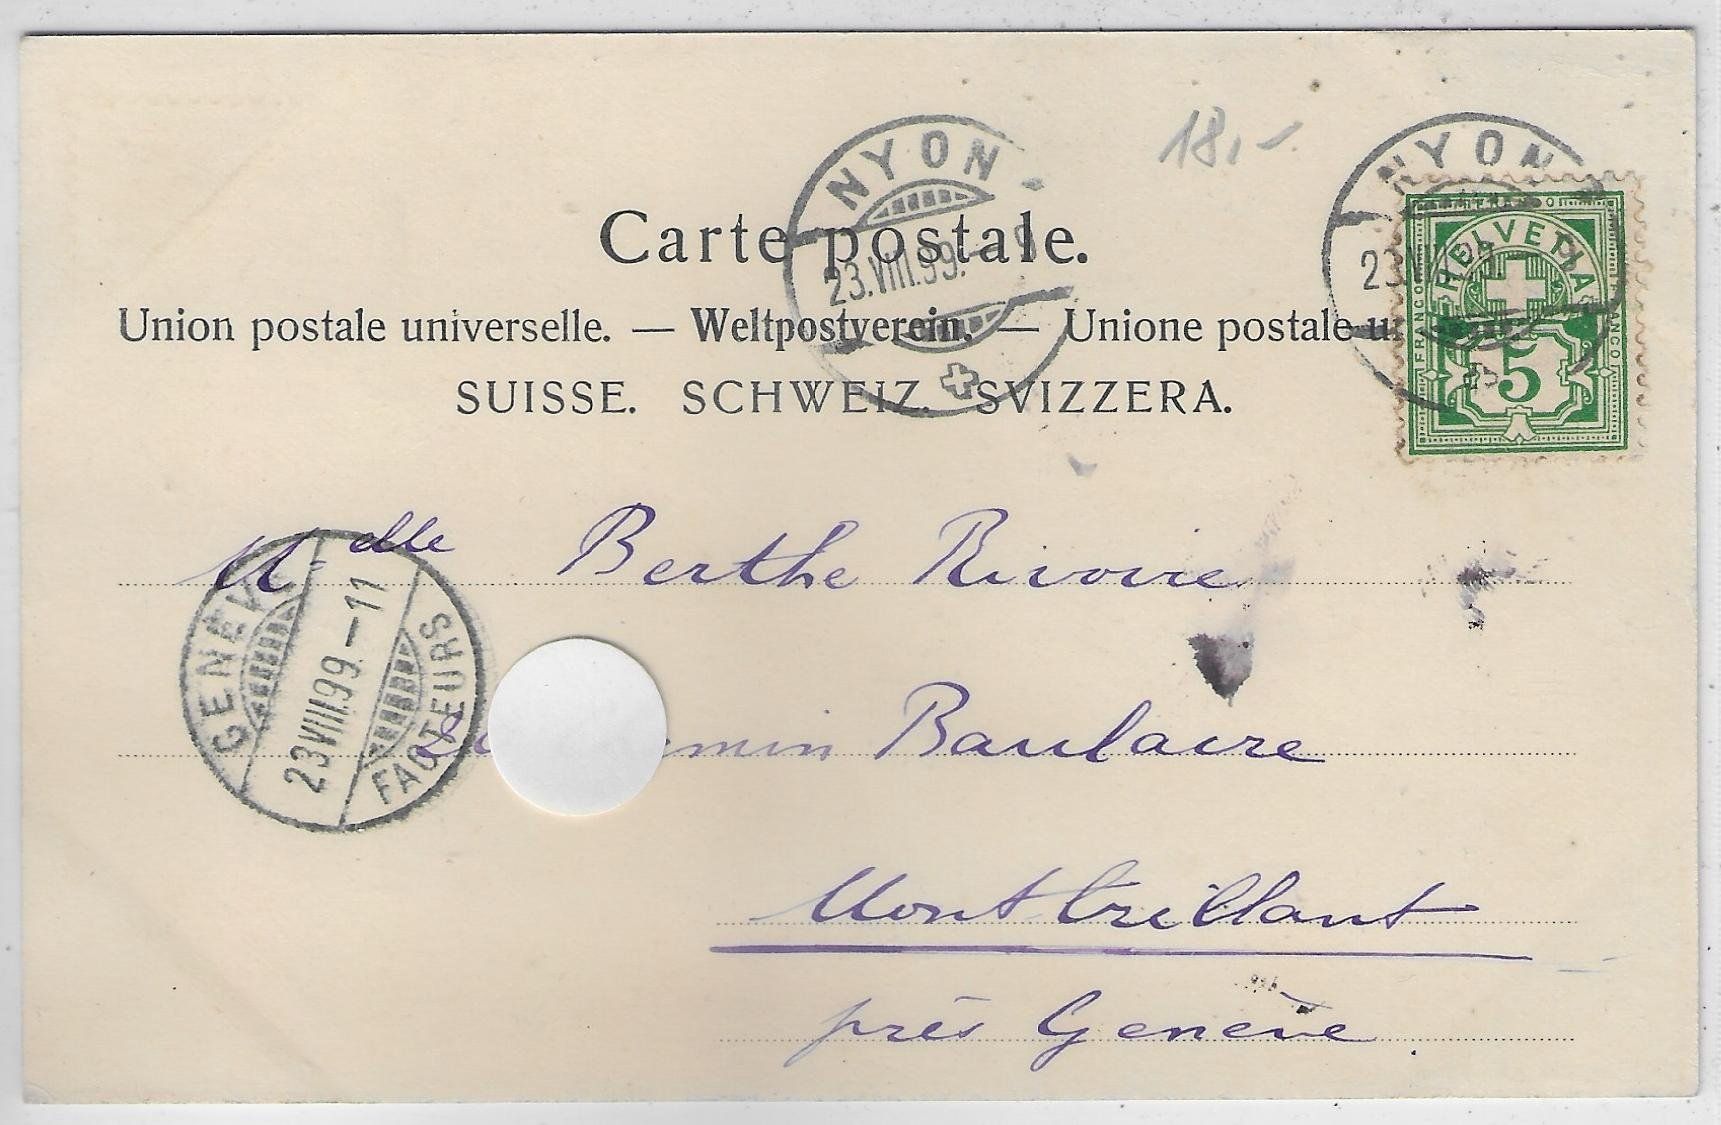 NYON
23.VIII.99.-
18,-
NYON
23.VIII.
Carte postale.
Union postale universelle. — Weltpostverein. — Unione postale u
SUISSE. SCHWEIZ. SVIZZERA.
FRANCO
HELVETIA
FRANCO
FRANCO
5
Melle Berthe Rivoire
GENÈVE
23.VIII.99.-11
FACTEURS
min Baulacre
Montbrillant
près Genève